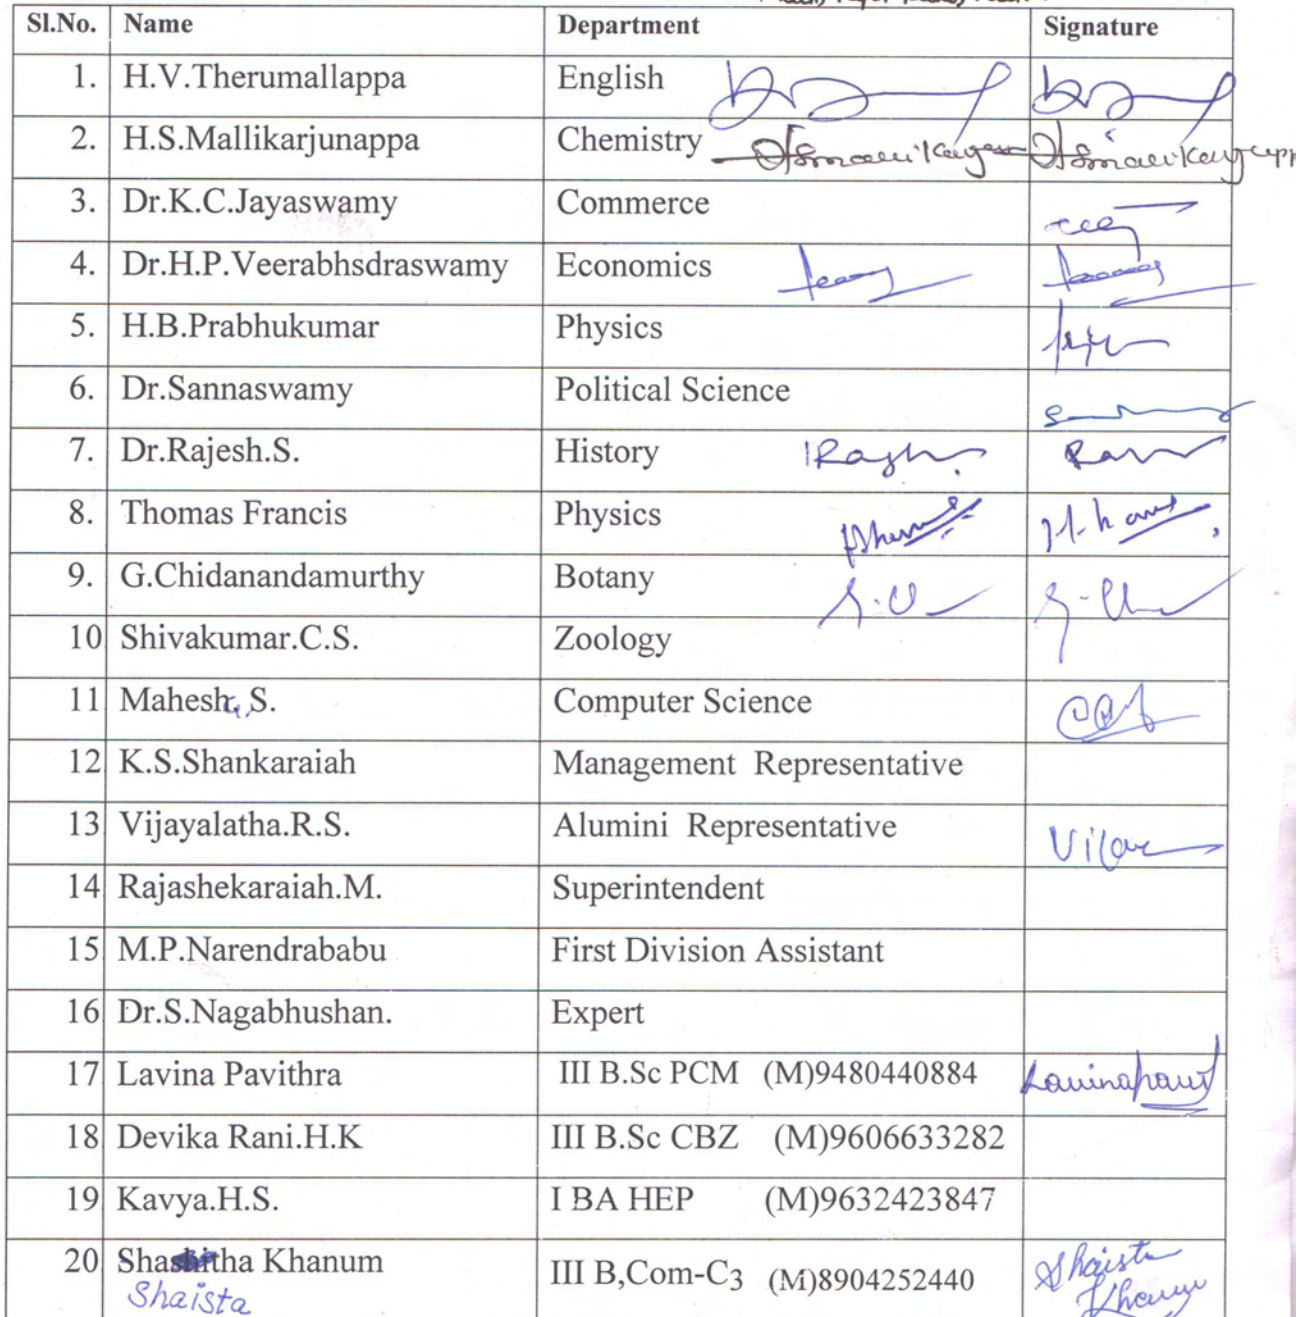 Sl.No. Name Department Signature
1. H.V.Therumallappa English
2. H.S.Mallikarjunappa Chemistry
3. Dr.K.C.Jayaswamy Commerce
4. Dr.H.P.Veerabhsdraswamy Economics
5. H.B.Prabhukumar Physics
6. Dr.Sannaswamy Political Science
7. Dr.Rajesh.S. History
8. Thomas Francis Physics
9. G.Chidanandamurthy Botany
10 Shivakumar.C.S. Zoology
11 Mahesh. S. Computer Science
12 K.S.Shankaraiah Management Representative
13 Vijayalatha.R.S. Alumini Representative
14 Rajashekaraiah.M. Superintendent
15 M.P.Narendrababu First Division Assistant
16 Dr.S.Nagabhushan. Expert
17 Lavina Pavithra III B.Sc PCM (M)9480440884
18 Devika Rani.H.K III B.Sc CBZ (M)9606633282
19 Kavya.H.S. I BA HEP (M)9632423847
20 Shashitha Khanum III B,Com-C3 (M)8904252440 Shaista
Shaista Khanum